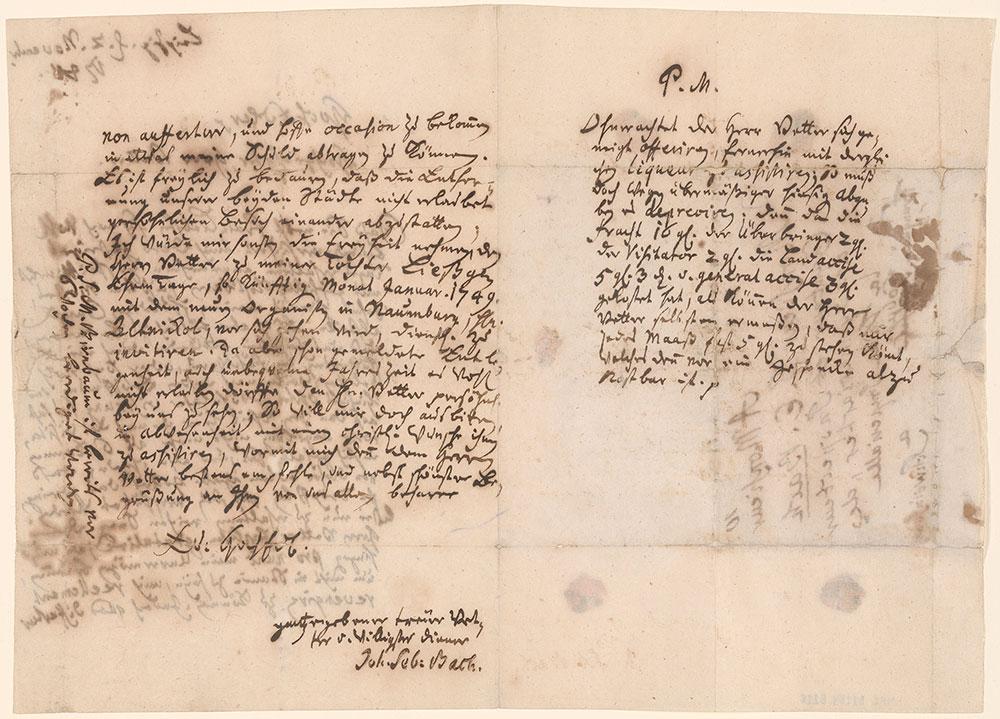 und beßre occasion zu bekommen
in etwas meine Schuld abtragen zu können.
Es ist freylich zu bedauren, daß die Entfer-
nung unserer beyden Städte nicht erlaubet
persöhnlichen Besuch einander abzustatten;
Ich würde mir sonsten die Freyheit nehmen, den
Herrn Vetter zu meiner Tochter Ließgen
Ehren Tage, so künfftig Monat Januar. 1749.
mit dem neuen Organisten in Naumburg, Hr.
Altnickol, vor sich gehen wird, dienstl. zu
invitiren. Da aber schon gemeldete Entle-
genheit, auch unbequeme Jahres Zeit es wohl
nicht erlauben dörffte den Hn. Vetter persöhnl.
bey uns zu sehen; So will mir doch ausbitten,
in Abwesenheit mit einem christl. Wunsche ihnen
zu assistiren, wormit mich denn dem Herrn
Vetter bestens empfehle, und nebst schönster Be-
grüßung an Ihm von uns allen beharre
Ew: HochEdl.
gantz ergebener treüer Vet-
ter u. willigster Diener
Joh. Seb: Bach.
P. S. M. Birnbaum ist bereits vor
6 Wochen beerdiget worden.
P. M.
Ohnerachtet der Herr Vetter sich ge-
neigt offeriren, fernerhin mit derglei-
chen liqueur zu assistiren; So muß
doch wegen übermäßiger hiesigen Abga-
ben es depreciren; denn da die
Fracht 16 gl. der Überbringer 2 gl.
der Visitator 2 gl. die Landaccise
5 gl. 3 d. u. general accise 3 gl.
gekostet hat, als können der Herr
Vetter selbsten ermeßen, daß mir
jedes Maaß fast 5 gl. zu stehen kömt,
welches denn vor ein Geschencke alzu
kostbar ist.